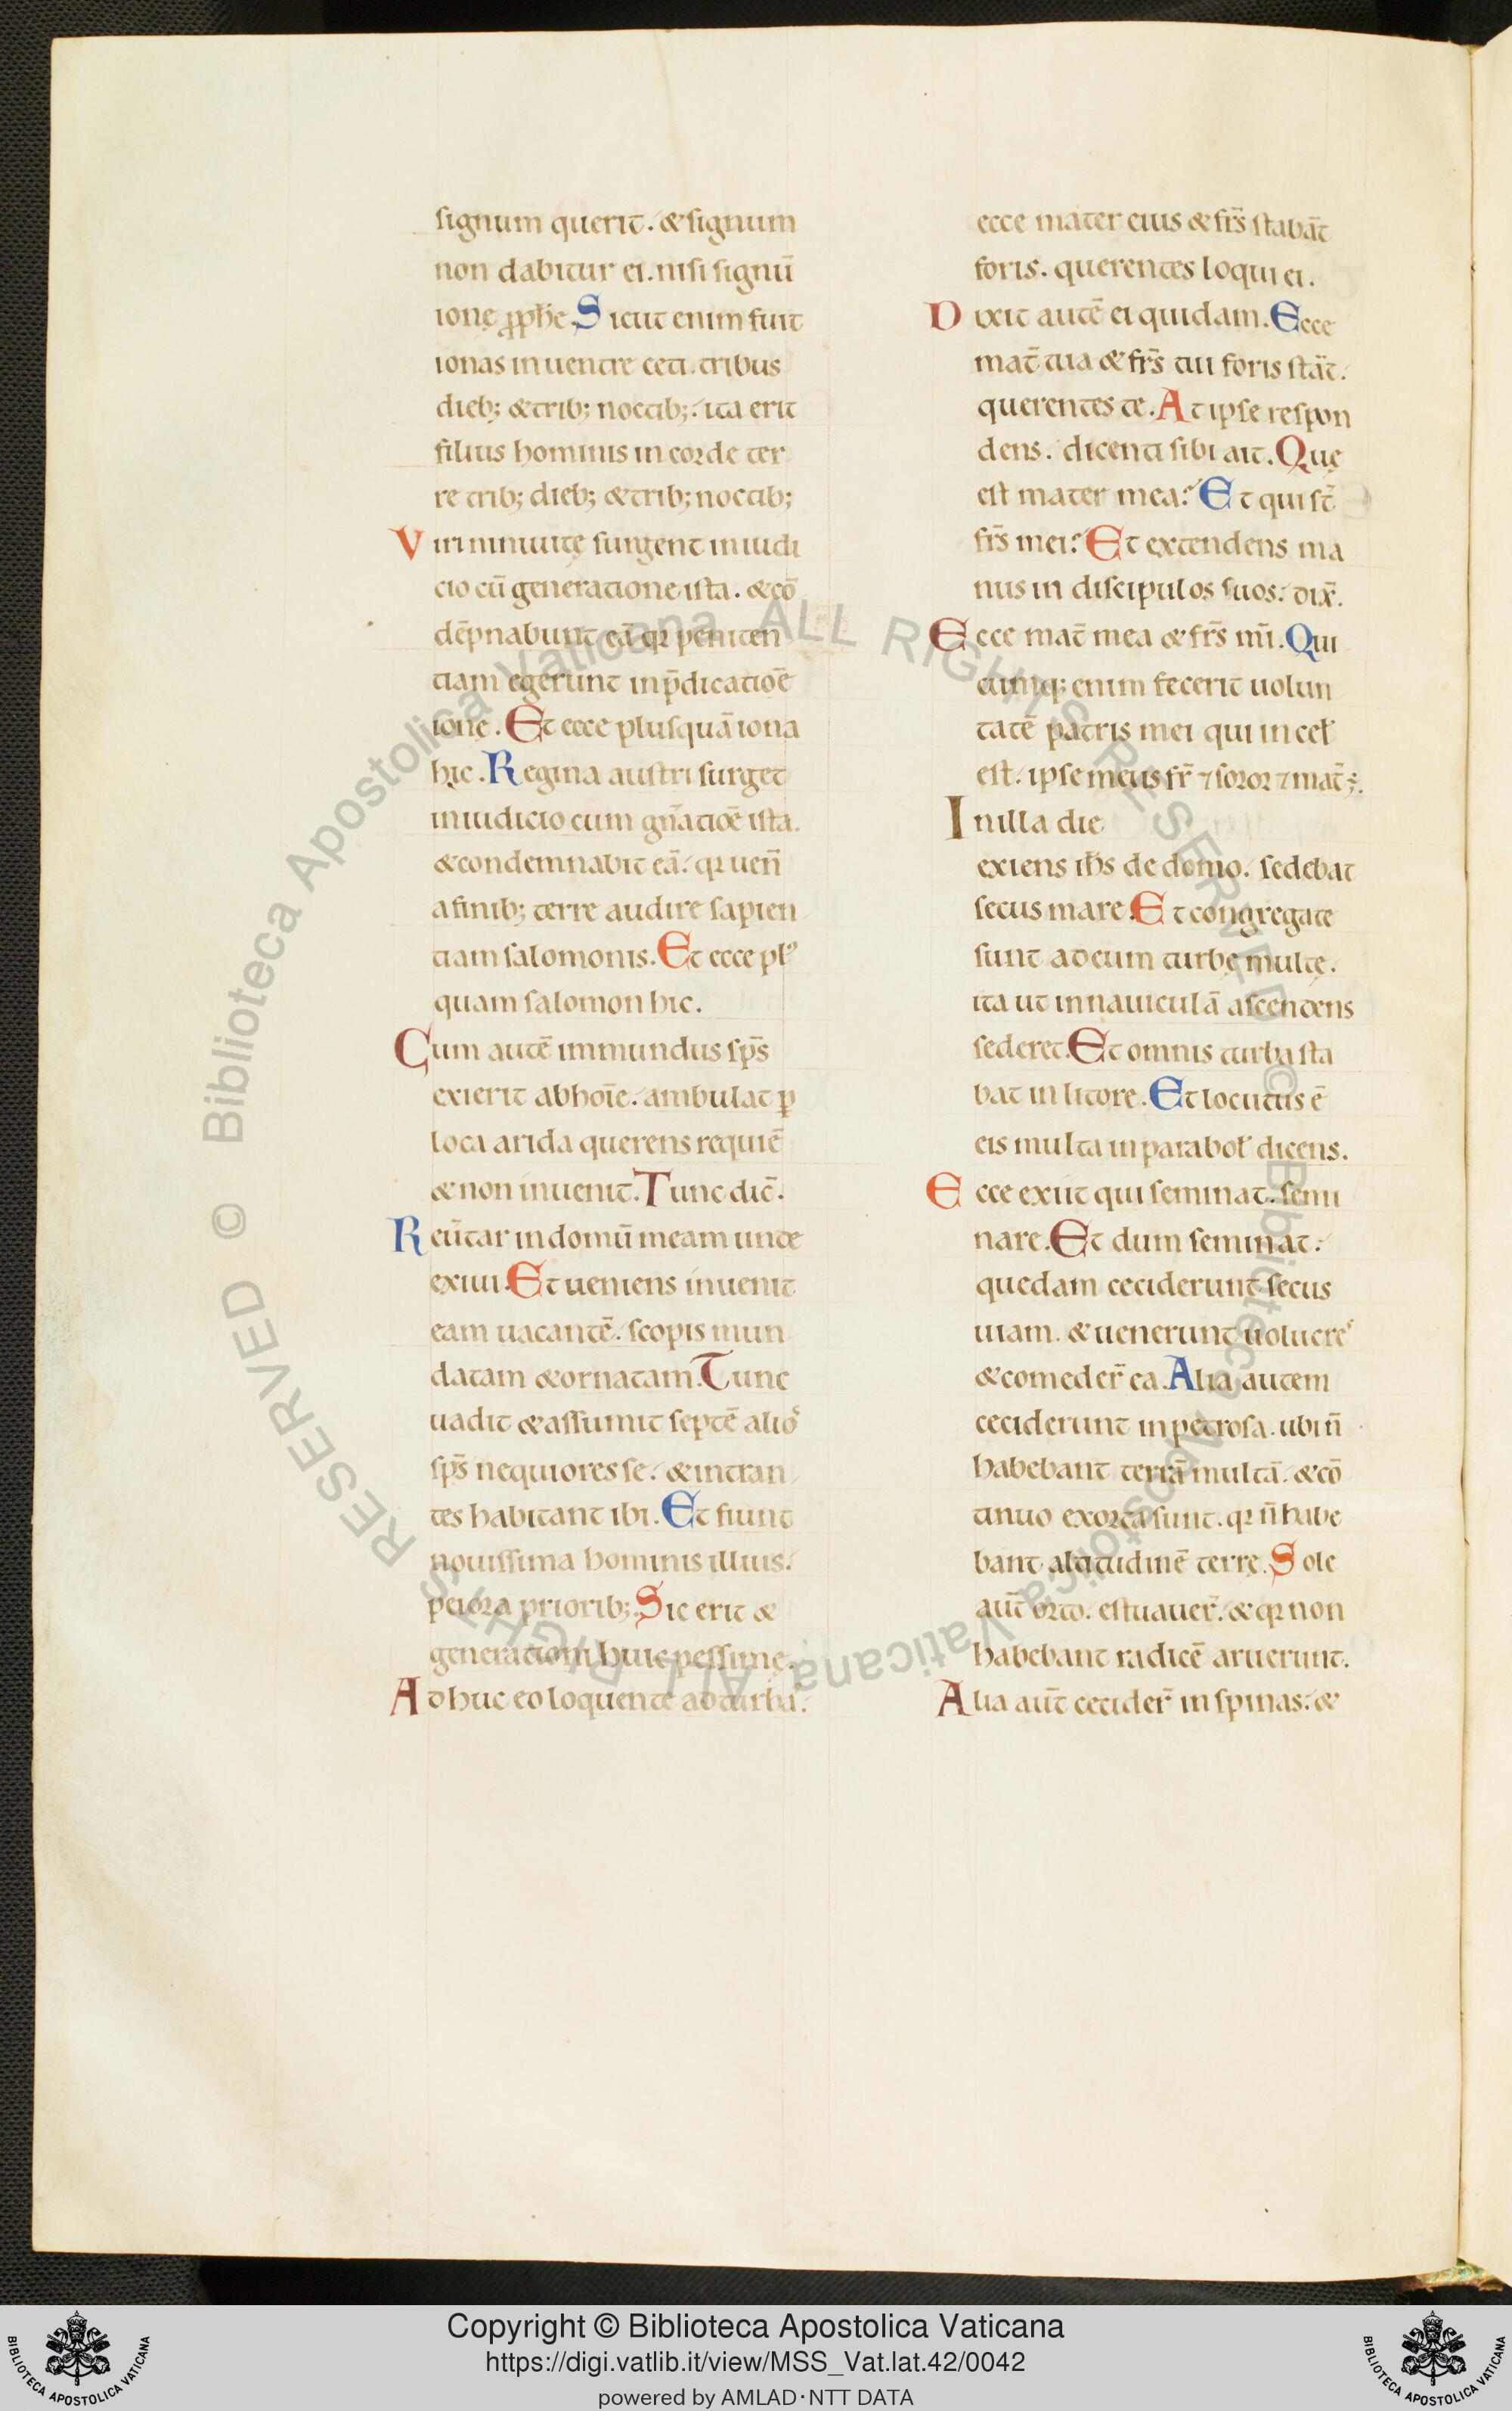 signum querit. & signum
non dabitur ei. nisi signū
ionę ꝓph̄e. Sicut enim fuit
ionas in uentre ceti. tribus
dieb; & trib; noctib;. ita erit
filius hominis in corde ter
re trib; dieb; & trib; noctib;
Viri niniuitę surgent in iudi
cio cū generatione ista. & cō
dēpnabunt eā qꝛ peniten
tiam egerunt in p̄dicatiōe
ionę. Et ecce plusquā iona
hic. Regina austri surget
in iudicio cum gn̄atiōe ista.
& condemnabit eā. qꝛ uen̄
a finib; terre audire sapien
tiam salomonis. Et ecce plꝰ
quam salomon hic.
Cum autē immundus sp̄s
exierit ab hoīe. ambulat ꝑ
loca arida querens requiē
& non inuenit. Tunc dic̄.
Reūtar in domū meam unde
exiui. Et ueniens inuenit
eam uacantē. scopis mun
datam & ornatam. Tunc
uadit & assumit septē alios
sp̄s nequiores se. & intran
tes habitant ibi. Et fiunt
nouissima hominis illius.
peiora priorib;. Sic erit &
generationi huic pessimę.
Adhuc eo loquente ad turbas.
ecce mater eius & frs̄ stabāt
foris. querentes loqui ei.
Dixit autē ei quidam. Ecce
mat̄ tua & frs̄ tui foris stāt.
querentes te. At ipse respon
dens. dicenti sibi ait. Quę
est mater mea? Et qui st̄
frs̄ mei? Et extendens ma
nus in discipulos suos. dix̄.
Ecce mat̄ mea & frs̄ mī. Qui
cumq; enim fecerit uolun
tatē patris mei qui in cel̄
est. ipse meus fr̄ ⁊ soror ⁊ mat̄;.
In illa die
exiens ih̄s de domo. sedebat
secus mare. Et congregate
sunt ad eum turbę multę.
ita ut in nauiculā ascendens
sederet. Et omnis turba sta
bat in litore. Et locutus ē
eis multa in parabol̄ dicens.
Ecce exiit qui seminat. semi
nare. Et dum seminat.
quedam ceciderunt secus
uiam. & uenerunt uolucres
& comeder̄ ea. Alia autem
ceciderunt in petrosa. ubi n̄
habebant terrā multā. & cō
tinuo exorta sunt. qꝛ n̄ habe
bant altitudinē terrę. Sole
aut̄ orto. estuauer̄. & qꝛ non
habebant radicē aruerunt.
Alia aut̄ cecider̄ in spinas. &
RESERVED © Biblioteca Apostolica Vaticana ALL RIGHTS RESERVED © Biblioteca Apostolica Vaticana ALL RIGHTS
Copyright © Biblioteca Apostolica Vaticana
https://digi.vatlib.it/view/MSS_Vat.lat.42/0042
powered by AMLAD·NTT DATA
BIBLIOTECA APOSTOLICA VATICANA
BIBLIOTECA APOSTOLICA VATICANA